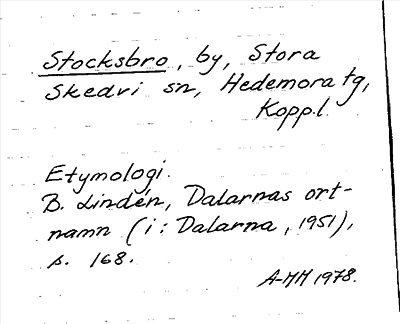 Stocksbro, by, Stora
Skedvi sn, Hedemora tg,
Kopp.l.
Etymologi.
B. Lindén, Dalarnas ort-
namn (i: Dalarna, 1951),
s. 168.
A-MH 1978.